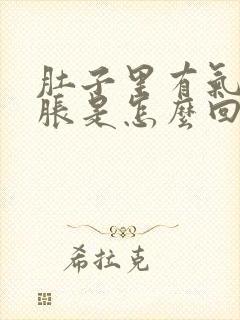 肚子里有氣
脹是怎麼回
希拉克